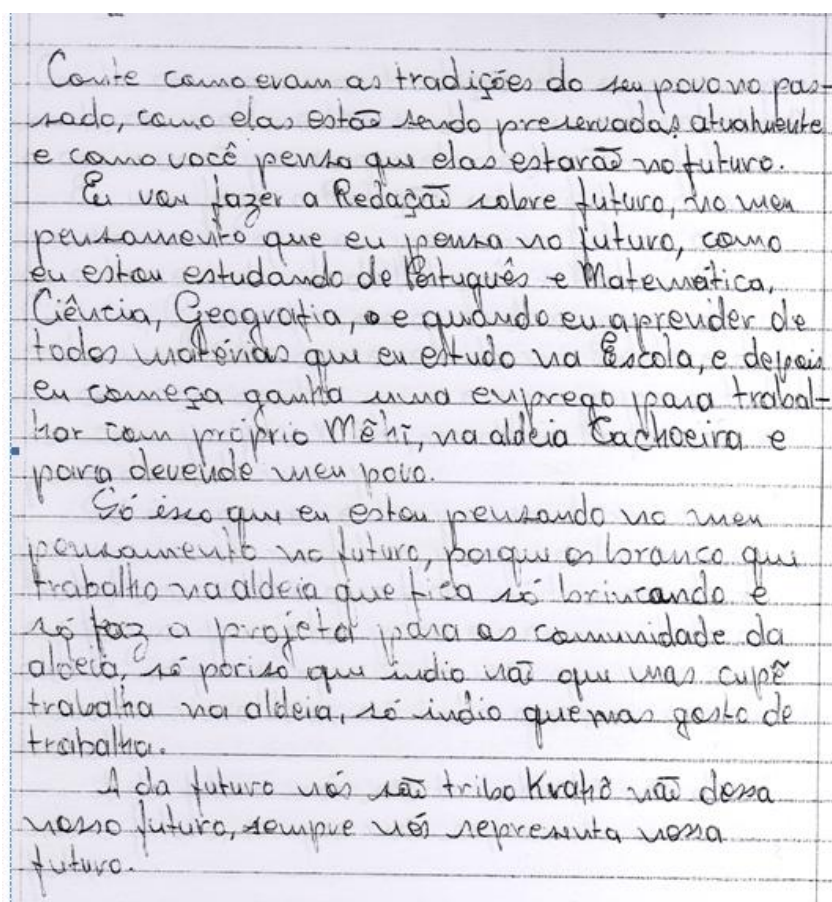 Conte como eram as tradições do seu povo no pas-
sado, como elas estão sendo preservadas atualmente
e como você pensa que elas estarão no futuro.
Eu vou fazer a Redação sobre futuro, no meu
pensamento que eu pensa no futuro, como
eu estou estudando de Português e Matemática,
Ciência, Geografia, e quando eu aprender de
todos matérias que eu estudo na Escola, e depois
eu começa ganha uma emprego para trabal-
har com próprio Mêhĩ, na aldeia Cachoeira e
para devende meu povo.
Só isso que eu estou pensando no meu
pensamento no futuro, porque os branco que
trabalho na aldeia que fica só brincando e
só faz a projeto para as comunidade da
aldeia, só poriso que índio não que mas cupẽ
trabalha na aldeia, só índio que mas gosto de
trabalha.
A da futuro nós são tribo Krahô não dessa
nosso futuro, sempre nós representa nossa
futuro.